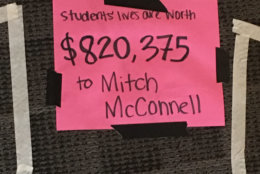 students' lives are worth
$820,375
to Mitch
McConnell